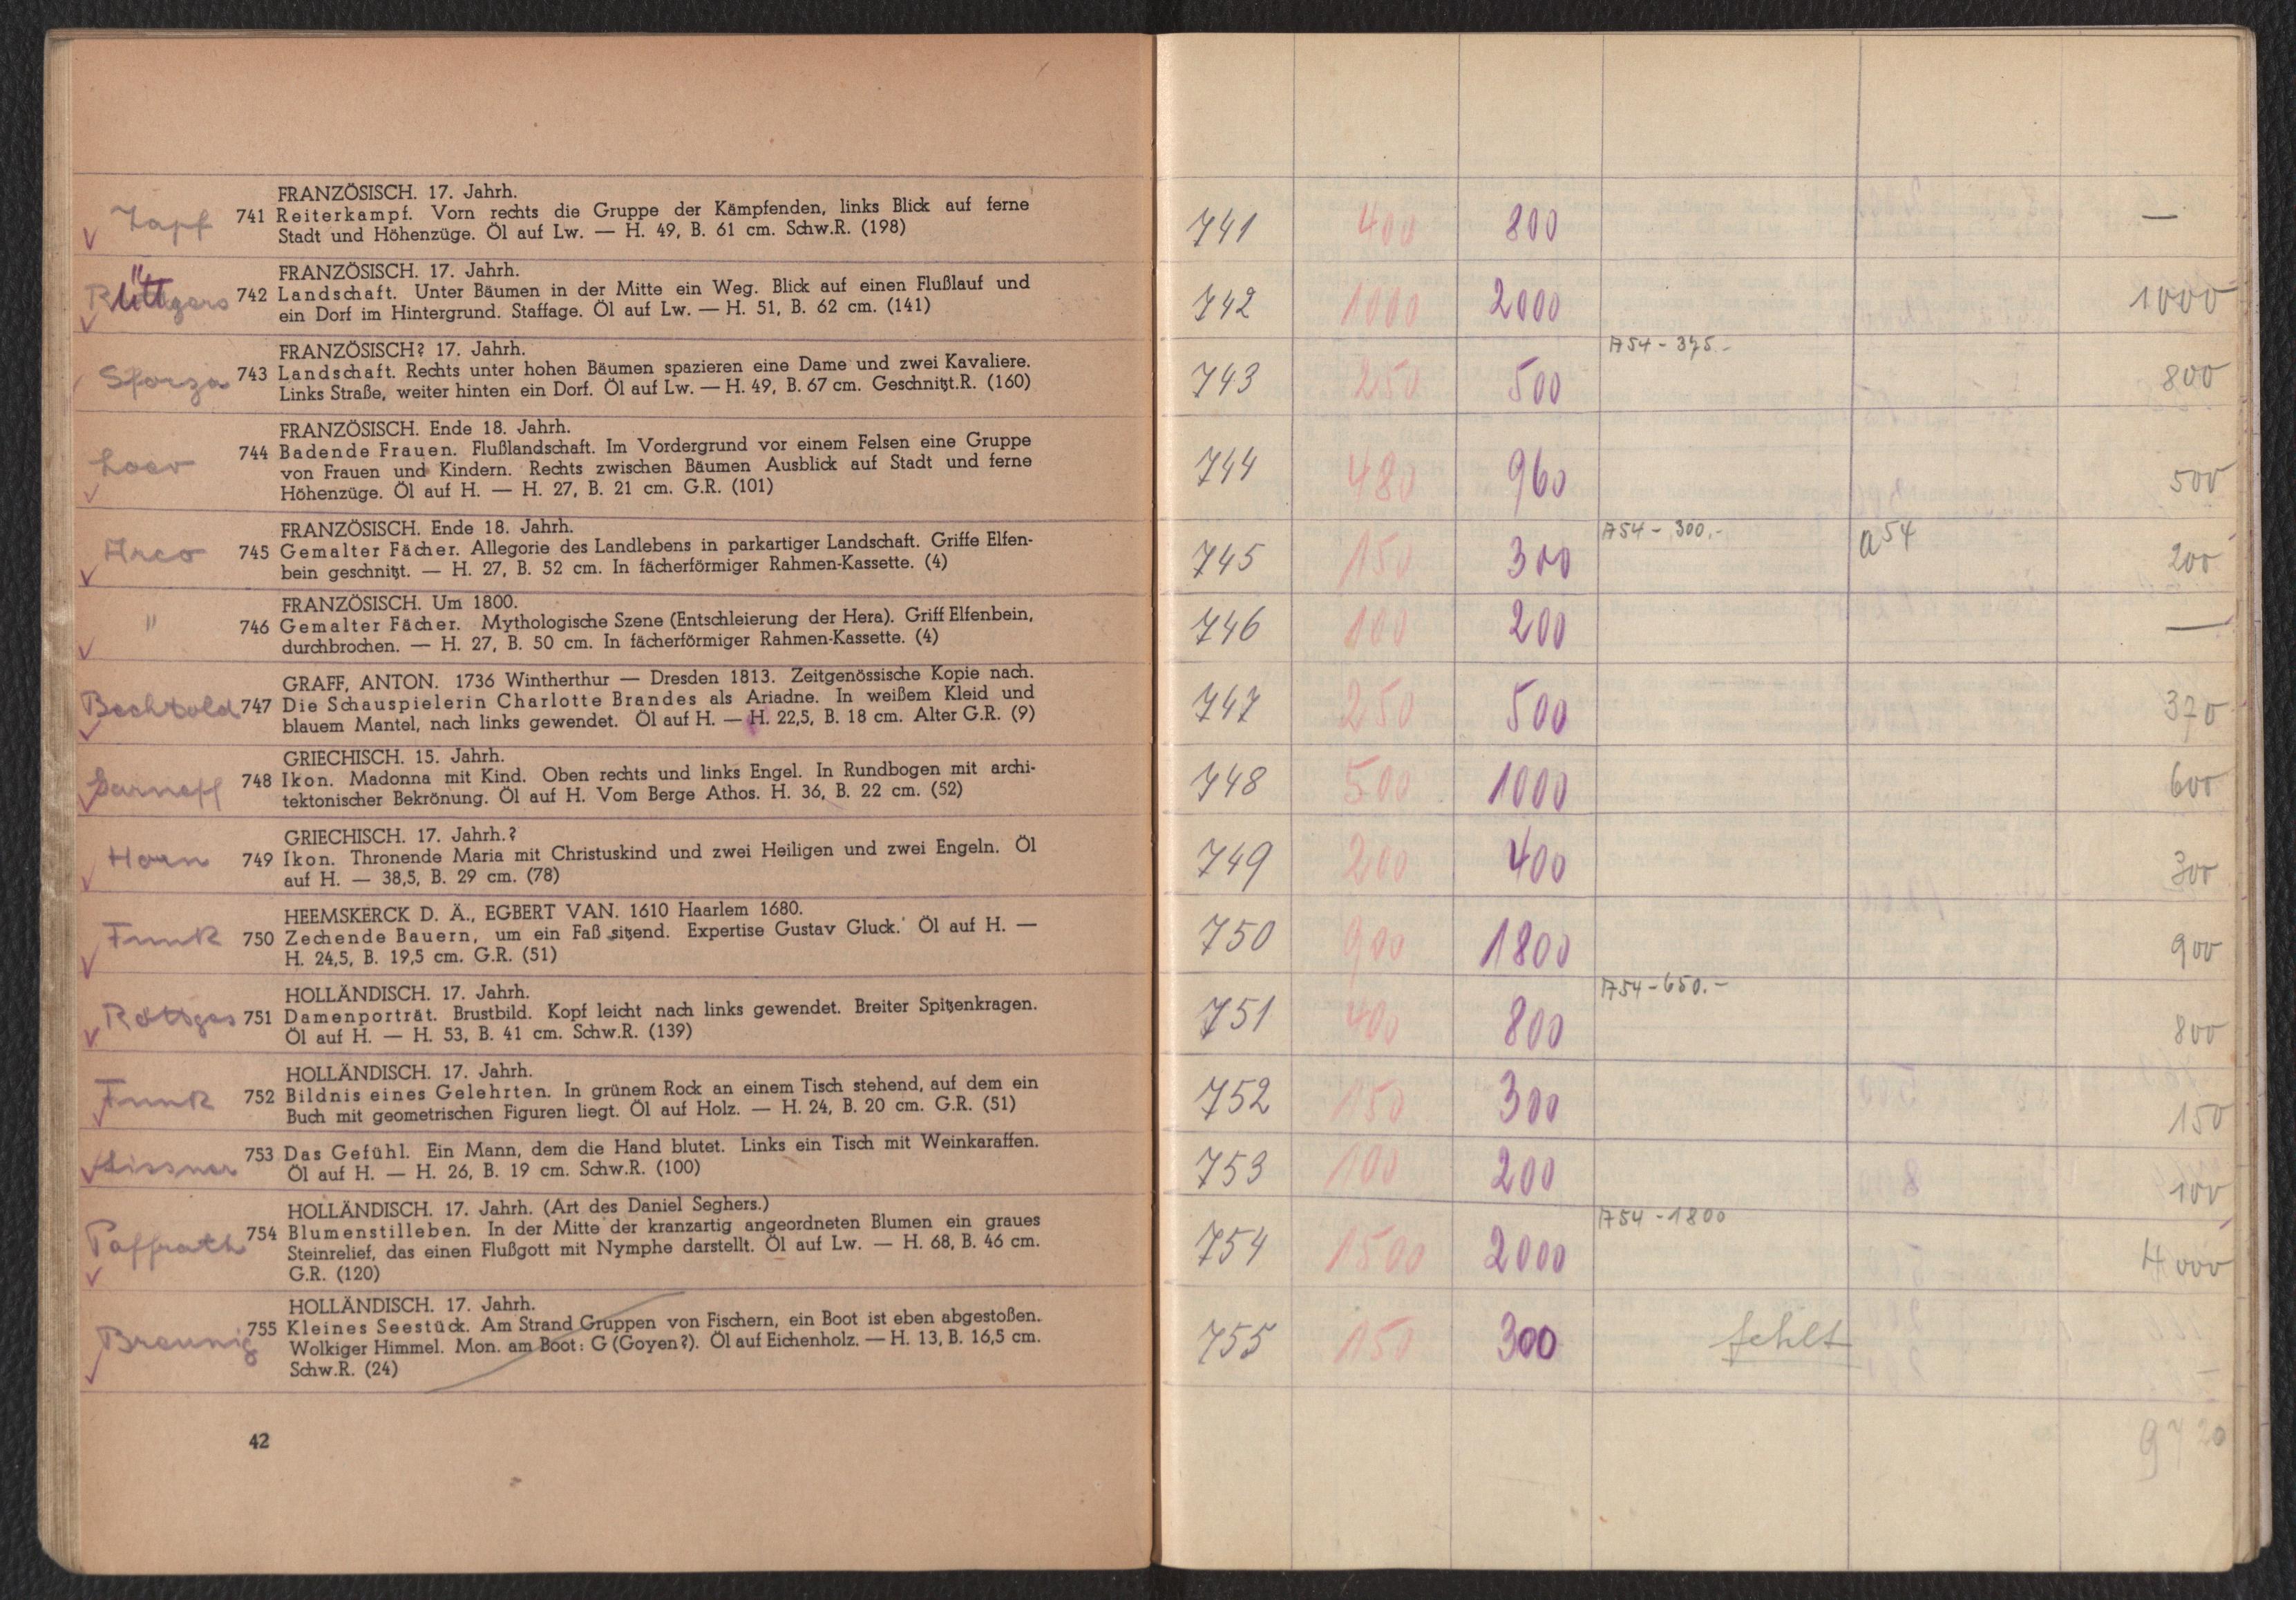 FRANZÖSISCH. 17. Jahrh.
Zapf 741 Reiterkampf. Vorn rechts die Gruppe der Kämpfenden, links Blick auf ferne
Stadt und Höhenzüge. Öl auf Lw. — H. 49, B. 61 cm. Schw.R. (198)
FRANZÖSISCH. 17. Jahrh.
742 Landschaft. Unter Bäumen in der Mitte ein Weg. Blick auf einen Flußlauf und
ein Dorf im Hintergrund. Staffage. Öl auf Lw. — H. 51, B. 62 cm. (141)
FRANZÖSISCH? 17. Jahrh.
Sforza 743 Landschaft. Rechts unter hohen Bäumen spazieren eine Dame und zwei Kavaliere.
Links Straße, weiter hinten ein Dorf. Öl auf Lw. — H. 49, B. 67 cm. Geschnitzt.R. (160)
FRANZÖSISCH. Ende 18. Jahrh.
744 Badende Frauen. Flußlandschaft. Im Vordergrund vor einem Felsen eine Gruppe
von Frauen und Kindern. Rechts zwischen Bäumen Ausblick auf Stadt und ferne
Höhenzüge. Öl auf H. — H. 27, B. 21 cm. G.R. (101)
FRANZÖSISCH. Ende 18. Jahrh.
Arco 745 Gemalter Fächer. Allegorie des Landlebens in parkartiger Landschaft. Griffe Elfen-
bein geschnitzt. — H. 27, B. 52 cm. In fächerförmiger Rahmen-Kassette. (4)
FRANZÖSISCH. Um 1800.
" 746 Gemalter Fächer. Mythologische Szene (Entschleierung der Hera). Griff Elfenbein,
durchbrochen. — H. 27, B. 50 cm. In fächerförmiger Rahmen-Kassette. (4)
GRAFF, ANTON. 1736 Wintherthur — Dresden 1813. Zeitgenössische Kopie nach.
Bechtold 747 Die Schauspielerin Charlotte Brandes als Ariadne. In weißem Kleid und
blauem Mantel, nach links gewendet. Öl auf H. — H. 22,5, B. 18 cm. Alter G.R. (9)
GRIECHISCH. 15. Jahrh.
748 Ikon. Madonna mit Kind. Oben rechts und links Engel. In Rundbogen mit archi-
tektonischer Bekrönung. Öl auf H. Vom Berge Athos. H. 36, B. 22 cm. (52)
GRIECHISCH. 17. Jahrh.?
Horn 749 Ikon. Thronende Maria mit Christuskind und zwei Heiligen und zwei Engeln. Öl
auf H. — 38,5, B. 29 cm. (78)
HEEMSKERCK D. Ä., EGBERT VAN. 1610 Haarlem 1680.
Funk 750 Zechende Bauern, um ein Faß sitzend. Expertise Gustav Gluck. Öl auf H. —
H. 24,5, B. 19,5 cm. G.R. (51)
HOLLÄNDISCH. 17. Jahrh.
Röttges 751 Damenporträt. Brustbild. Kopf leicht nach links gewendet. Breiter Spitzenkragen.
Öl auf H. — H. 53, B. 41 cm. Schw.R. (139)
HOLLÄNDISCH. 17. Jahrh.
Funk 752 Bildnis eines Gelehrten. In grünem Rock an einem Tisch stehend, auf dem ein
Buch mit geometrischen Figuren liegt. Öl auf Holz. — H. 24, B. 20 cm. G.R. (51)
Lissner 753 Das Gefühl. Ein Mann, dem die Hand blutet. Links ein Tisch mit Weinkaraffen.
Öl auf H. — H. 26, B. 19 cm. Schw.R. (100)
HOLLÄNDISCH. 17. Jahrh. (Art des Daniel Seghers.)
Paffrath 754 Blumenstilleben. In der Mitte der kranzartig angeordneten Blumen ein graues
Steinrelief, das einen Flußgott mit Nymphe darstellt. Öl auf Lw. — H. 68, B. 46 cm.
G.R. (120)
HOLLÄNDISCH. 17. Jahrh.
Breunig 755 Kleines Seestück. Am Strand Gruppen von Fischern, ein Boot ist eben abgestoßen.
Wolkiger Himmel. Mon. am Boot: G (Goyen?). Öl auf Eichenholz. — H. 13, B. 16,5 cm.
Schw.R. (24)
42
741 400 800 —
742 1000 2000 1000
A54 - 375.-
743 250 500 800
744 480 960 500
A54 - 300.- a54
745 150 300 200
746 100 200 —
747 250 500 370
748 500 1000 600
749 200 400 300
750 900 1800 900
A54 - 650.-
751 400 800 800
752 150 300 150
753 100 200 100
A54 - 1800
754 1500 2000 4000
755 150 300 fehlt –
9720